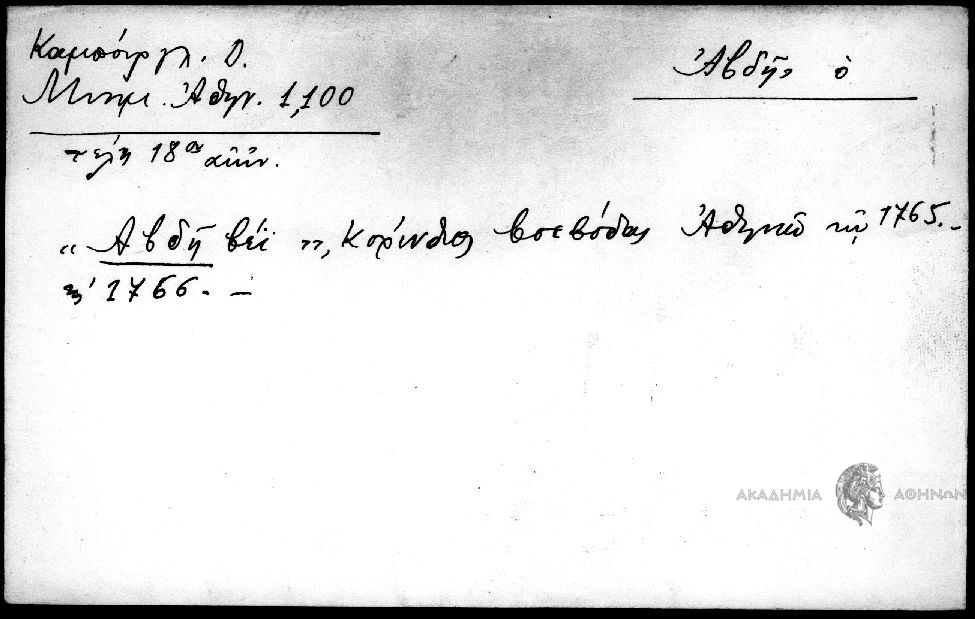 Καμπούρογλ. Δ.
Μνημ. Ἀθην. 1,100
Ἀβδῆς ὁ
τέλη 18ου αἰῶν.
« Ἀβδῆ βέϊ », Κορίνθιος βοεβόδας Ἀθηνῶν τῷ 1765.-
ἢ 1766. -
ΑΚΑΔΗΜΙΑ ΑΘΗΝΩΝ